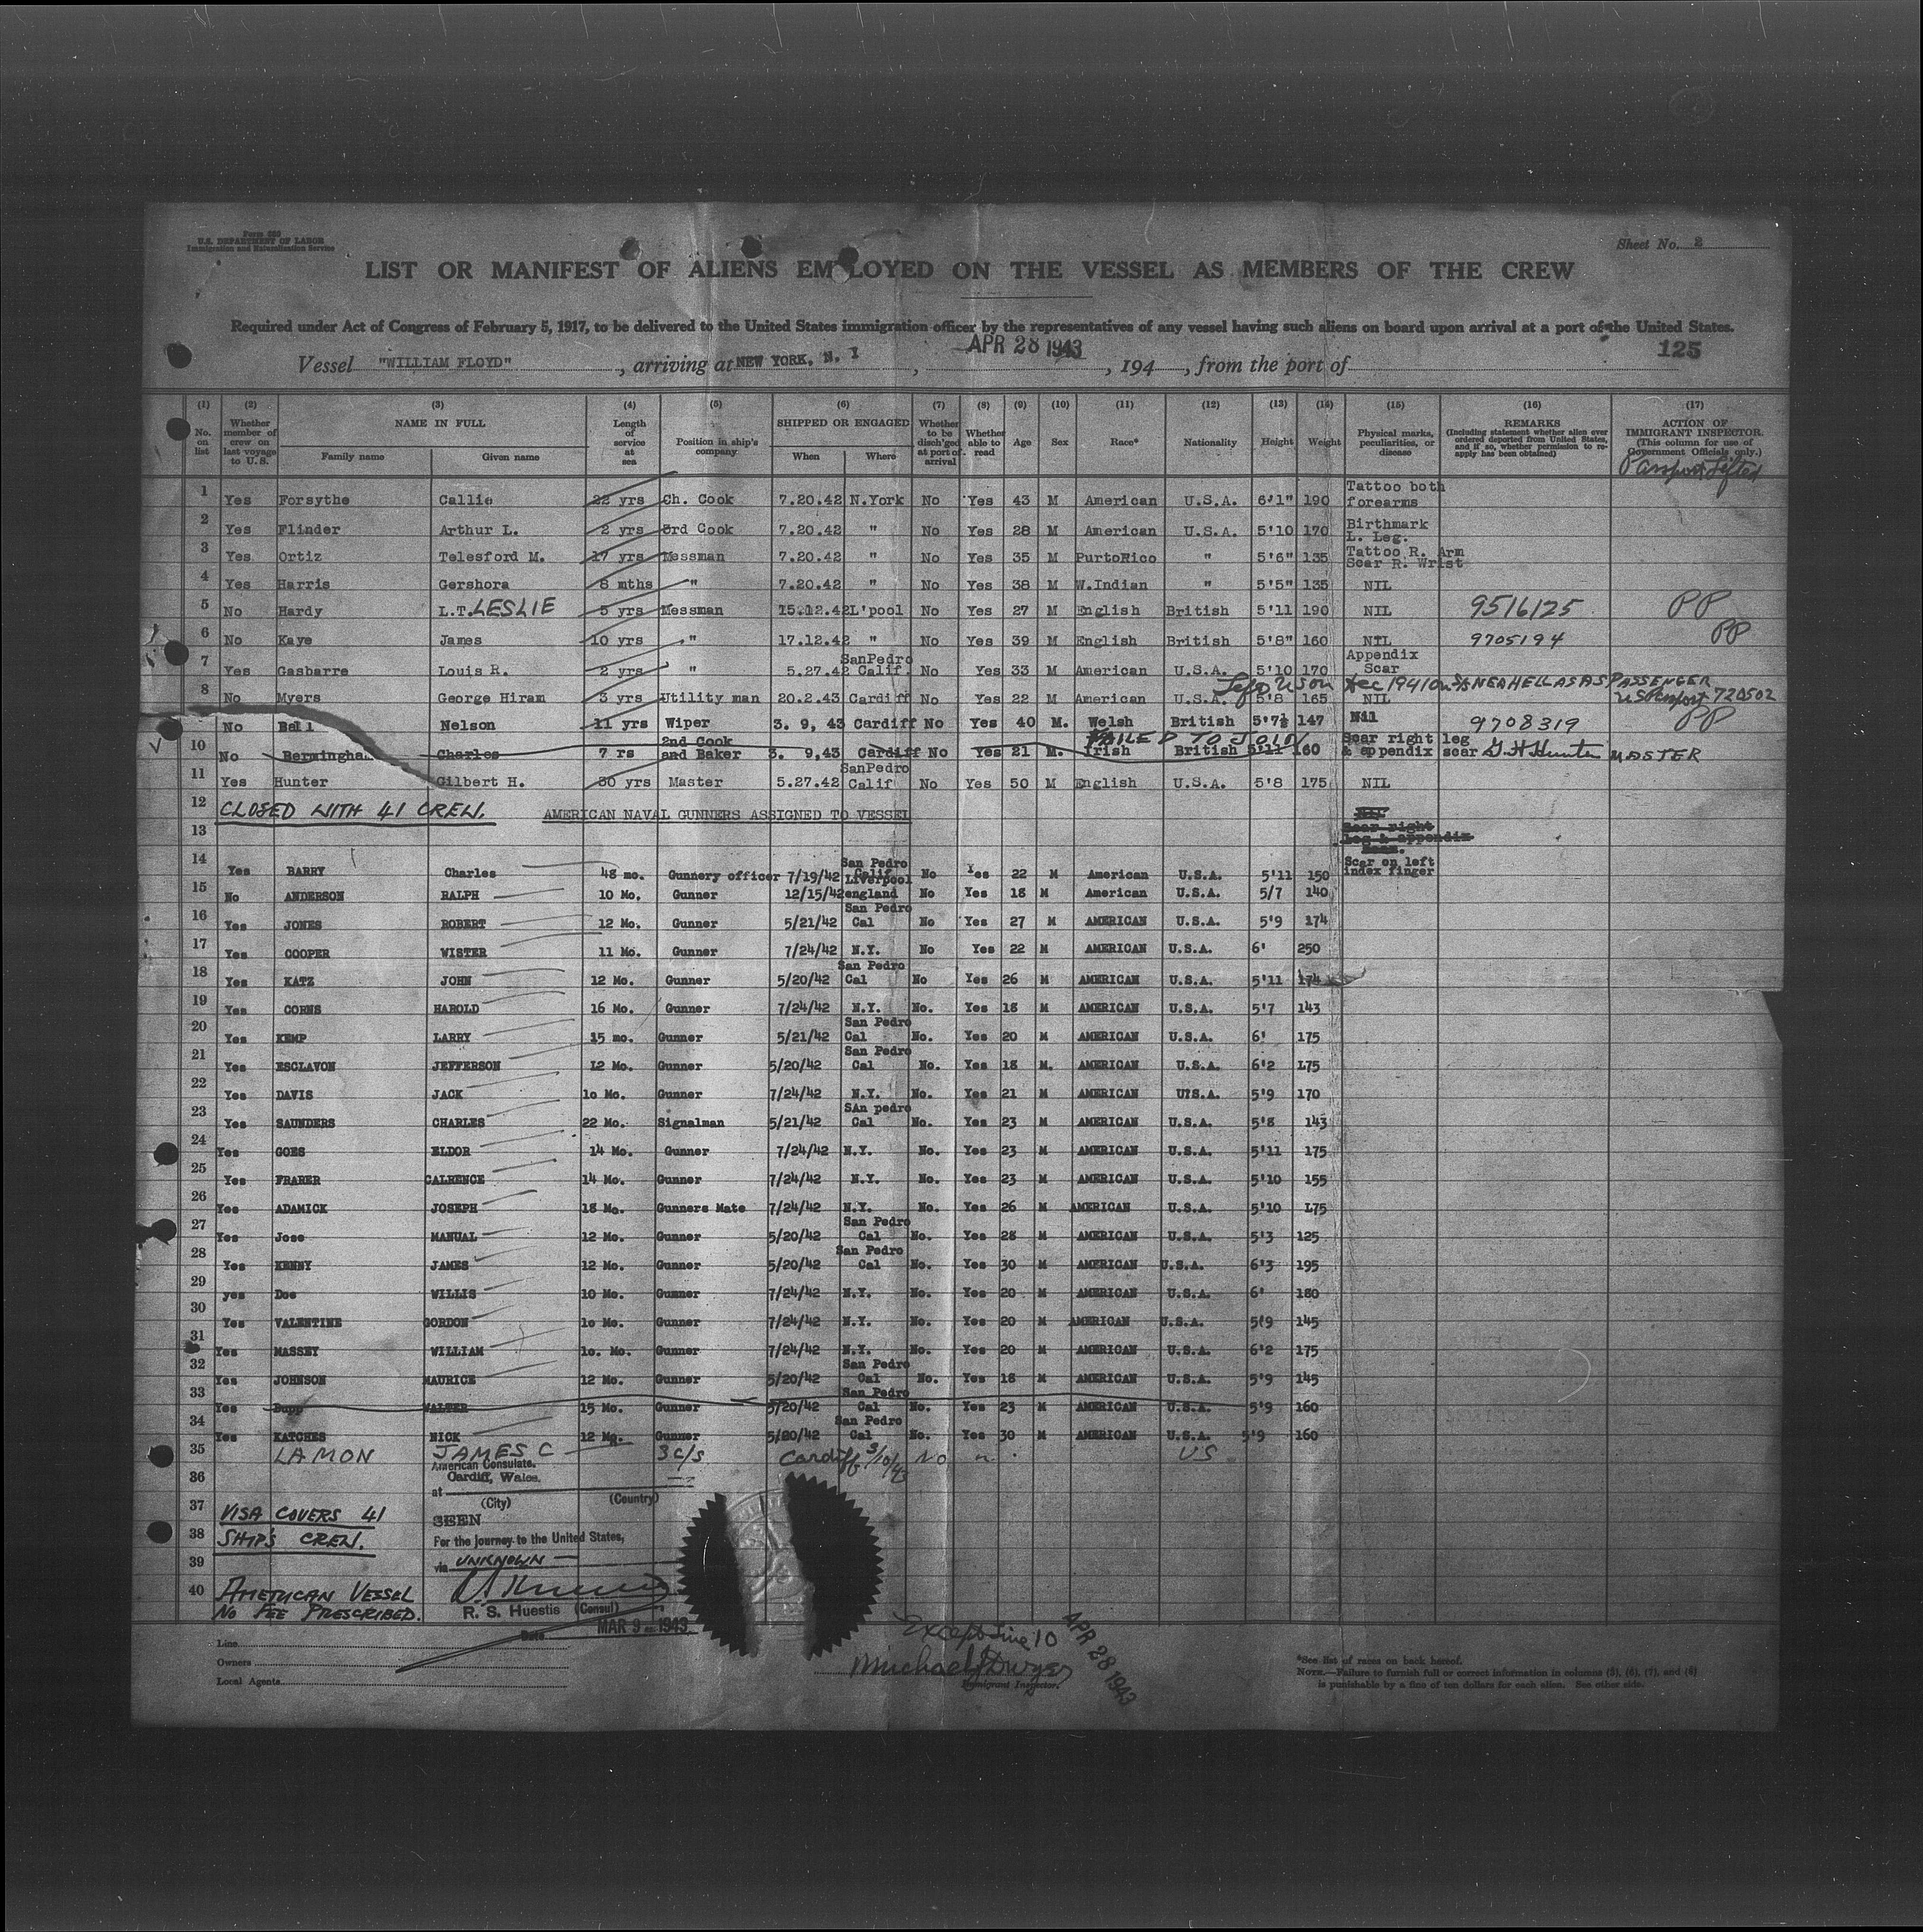 Form 680
U.S. DEPARTMENT OF LABOR
Immigration and Naturalization Service
Sheet No. 2
LIST OR MANIFEST OF ALIENS EMPLOYED ON THE VESSEL AS MEMBERS OF THE CREW
Required under Act of Congress of February 5, 1917, to be delivered to the United States immigration officer by the representatives of any vessel having such aliens on board upon arrival at a port of the United States.
Vessel "WILLIAM FLOYD", arriving at NEW YORK, N. Y, APR 28 1943, 194, from the port of
125
(1) (2) (3) (4) (5) (6) (7) (8) (9) (10) (11) (12) (13) (14) (15) (16) (17)
No. on list
Whether member of crew on last voyage to U.S.
NAME IN FULL
Family name Given name
Length of service at sea
Position in ship's company
SHIPPED OR ENGAGED
When Where
Whether to be disch'ged at port of arrival
Whether able to read
Age Sex Race* Nationality Height Weight
Physical marks, peculiarities, or disease
REMARKS
(Including statement whether alien ever ordered deported from United States, and if so, whether permission to reapply has been obtained)
ACTION OF IMMIGRANT INSPECTOR.
(This column for use of Government Officials only.)
Passport Lifted
1 Yes Forsythe Callie 22 yrs Ch. Cook 7.20.42 N.York No Yes 43 M American U.S.A. 6'1" 190 Tattoo both forearms
2 Yes Flinder Arthur L. 2 yrs 3rd Cook 7.20.42 " No Yes 28 M American U.S.A. 5'10 170 Birthmark L. Leg.
3 Yes Ortiz Telesford M. 17 yrs Messman 7.20.42 " No Yes 35 M PurtoRico " 5'6" 135 Tattoo R. Arm Scar R. Wrist
4 Yes Harris Gershora 8 mths " 7.20.42 " No Yes 38 M W.Indian " 5'5" 135 NIL
5 No Hardy L.T. LESLIE 5 yrs Messman 15.12.42 L'pool No Yes 27 M English British 5'11 190 NIL 9516125 PP
6 No Kaye James 10 yrs " 17.12.42 " No Yes 39 M English British 5'8" 160 NIL 9705194 PP
7 Yes Gasbarre Louis R. 2 yrs " 5.27.42 SanPedro Calif. No Yes 33 M American U.S.A. 5'10 170 Appendix Scar
Left US on Dec 1941 on SS NEA HELLAS AS PASSENGER
8 No Myers George Hiram 3 yrs Utility man 20.2.43 Cardiff No Yes 22 M American U.S.A. 5'8 165 NIL US Passport 720502
No Bell Nelson 11 yrs Wiper 3. 9, 43 Cardiff No Yes 40 M. Welsh British 5'7½ 147 Nil 9708319 PP
FAILED TO JOIN
10 No Bermingham Charles 7 rs 2nd Cook and Baker 3. 9,43 Cardiff No Yes 21 M. Irish British 5'11 160 Scar right leg & appendix scar G H Hunter MASTER
11 Yes Hunter Gilbert H. 30 yrs Master 5.27.42 SanPedro Calif No Yes 50 M English U.S.A. 5'8 175 NIL
12 CLOSED WITH 41 CREW. AMERICAN NAVAL GUNNERS ASSIGNED TO VESSEL
13 Scar right leg & appendix
14 Yes BARRY Charles 48 mo. Gunnery officer 7/19/42 San Pedro Calif No Yes 22 M American U.S.A. 5'11 150 Scar on left index finger
15 No ANDERSON RALPH 10 Mo. Gunner 12/15/42 Liverpool england No Yes 18 M American U.S.A. 5/7 140
16 Yes JONES ROBERT 12 Mo. Gunner 5/21/42 San Pedro Cal No Yes 27 M AMERICAN U.S.A. 5'9 174
17 Yes COOPER WISTER 11 Mo. Gunner 7/24/42 N.Y. No Yes 22 M AMERICAN U.S.A. 6' 250
18 Yes KATZ JOHN 12 Mo. Gunner 5/20/42 San Pedro Cal No Yes 26 M AMERICAN U.S.A. 5'11 174
19 Yes CORNS HAROLD 16 Mo. Gunner 7/24/42 N.Y. No. Yes 18 M AMERICAN U.S.A. 5'7 143
20 Yes KEMP LARRY 15 mo. Gunner 5/21/42 San Pedro Cal No. Yes 20 M AMERICAN U.S.A. 6' 175
21 Yes ESCLAVON JEFFERSON 12 Mo. Gunner 5/20/42 San Pedro Cal No. Yes 18 M. AMERICAN U.S.A. 6'2 175
22 Yes DAVIS JACK 10 Mo. Gunner 7/24/42 N.Y. No. Yes 21 M AMERICAN U.S.A. 5'9 170
23 Yes SAUNDERS CHARLES 22 Mo. Signalman 5/21/42 SAn pedro Cal No. Yes 23 M AMERICAN U.S.A. 5'8 143
24 Yes GOES ELDOR 14 Mo. Gunner 7/24/42 N.Y. No. Yes 23 M AMERICAN U.S.A. 5'11 175
25 Yes FRARER CALRENCE 14 Mo. Gunner 7/24/42 N.Y. No. Yes 23 M AMERICAN U.S.A. 5'10 155
26 Yes ADAMICK JOSEPH 18 Mo. Gunners Mate 7/24/42 N.Y. No. Yes 26 M AMERICAN U.S.A. 5'10 175
27 Yes Jose MANUAL 12 Mo. Gunner 5/20/42 San Pedro Cal No. Yes 28 M AMERICAN U.S.A. 5'3 125
28 Yes KENNY JAMES 12 Mo. Gunner 5/20/42 San Pedro Cal No. Yes 30 M AMERICAN U.S.A. 6'3 195
29 yes Doe WILLIS 10 Mo. Gunner 7/24/42 N.Y. No. Yes 20 M AMERICAN U.S.A. 6' 180
30 Yes VALENTINE GORDON 10 Mo. Gunner 7/24/42 N.Y. No. Yes 20 M AMERICAN U.S.A. 5'9 145
31 Yes MASSEY WILLIAM 10. Mo. Gunner 7/24/42 N.Y. No. Yes 20 M AMERICAN U.S.A. 6'2 175
32 Yes JOHNSON MAURICE 12 Mo. Gunner 5/20/42 San Pedro Cal No. Yes 18 M AMERICAN U.S.A. 5'9 145
33 Yes Bupp WALTER 15 Mo. Gunner 5/20/42 San Pedro Cal No. Yes 23 M AMERICAN U.S.A. 5'9 160
34 Yes KATCHES NICK 12 Mo. Gunner 5/20/42 San Pedro Cal No. Yes 30 M AMERICAN U.S.A. 5'9 160
35 LAMON JAMES C 3 C/S Cardiff 3/10/43 No US
36 American Consulate.
Cardiff, Wales.
at
(City) (Country)
37 VISA COVERS 41
SEEN
38 SHIP'S CREW.
For the journey to the United States,
39 via UNKNOWN
40 AMERICAN VESSEL
NO FEE PRESCRIBED.
R. S. Huestis (Consul)
Date MAR 9 1943
Line
Owners
Local Agents
Except Line 10
Michael J Dwyer
Immigrant Inspector.
APR 28 1943
*See list of races on back hereof.
NOTE.—Failure to furnish full or correct information in columns (5), (6), (7), and (8)
is punishable by a fine of ten dollars for each alien. See other side.